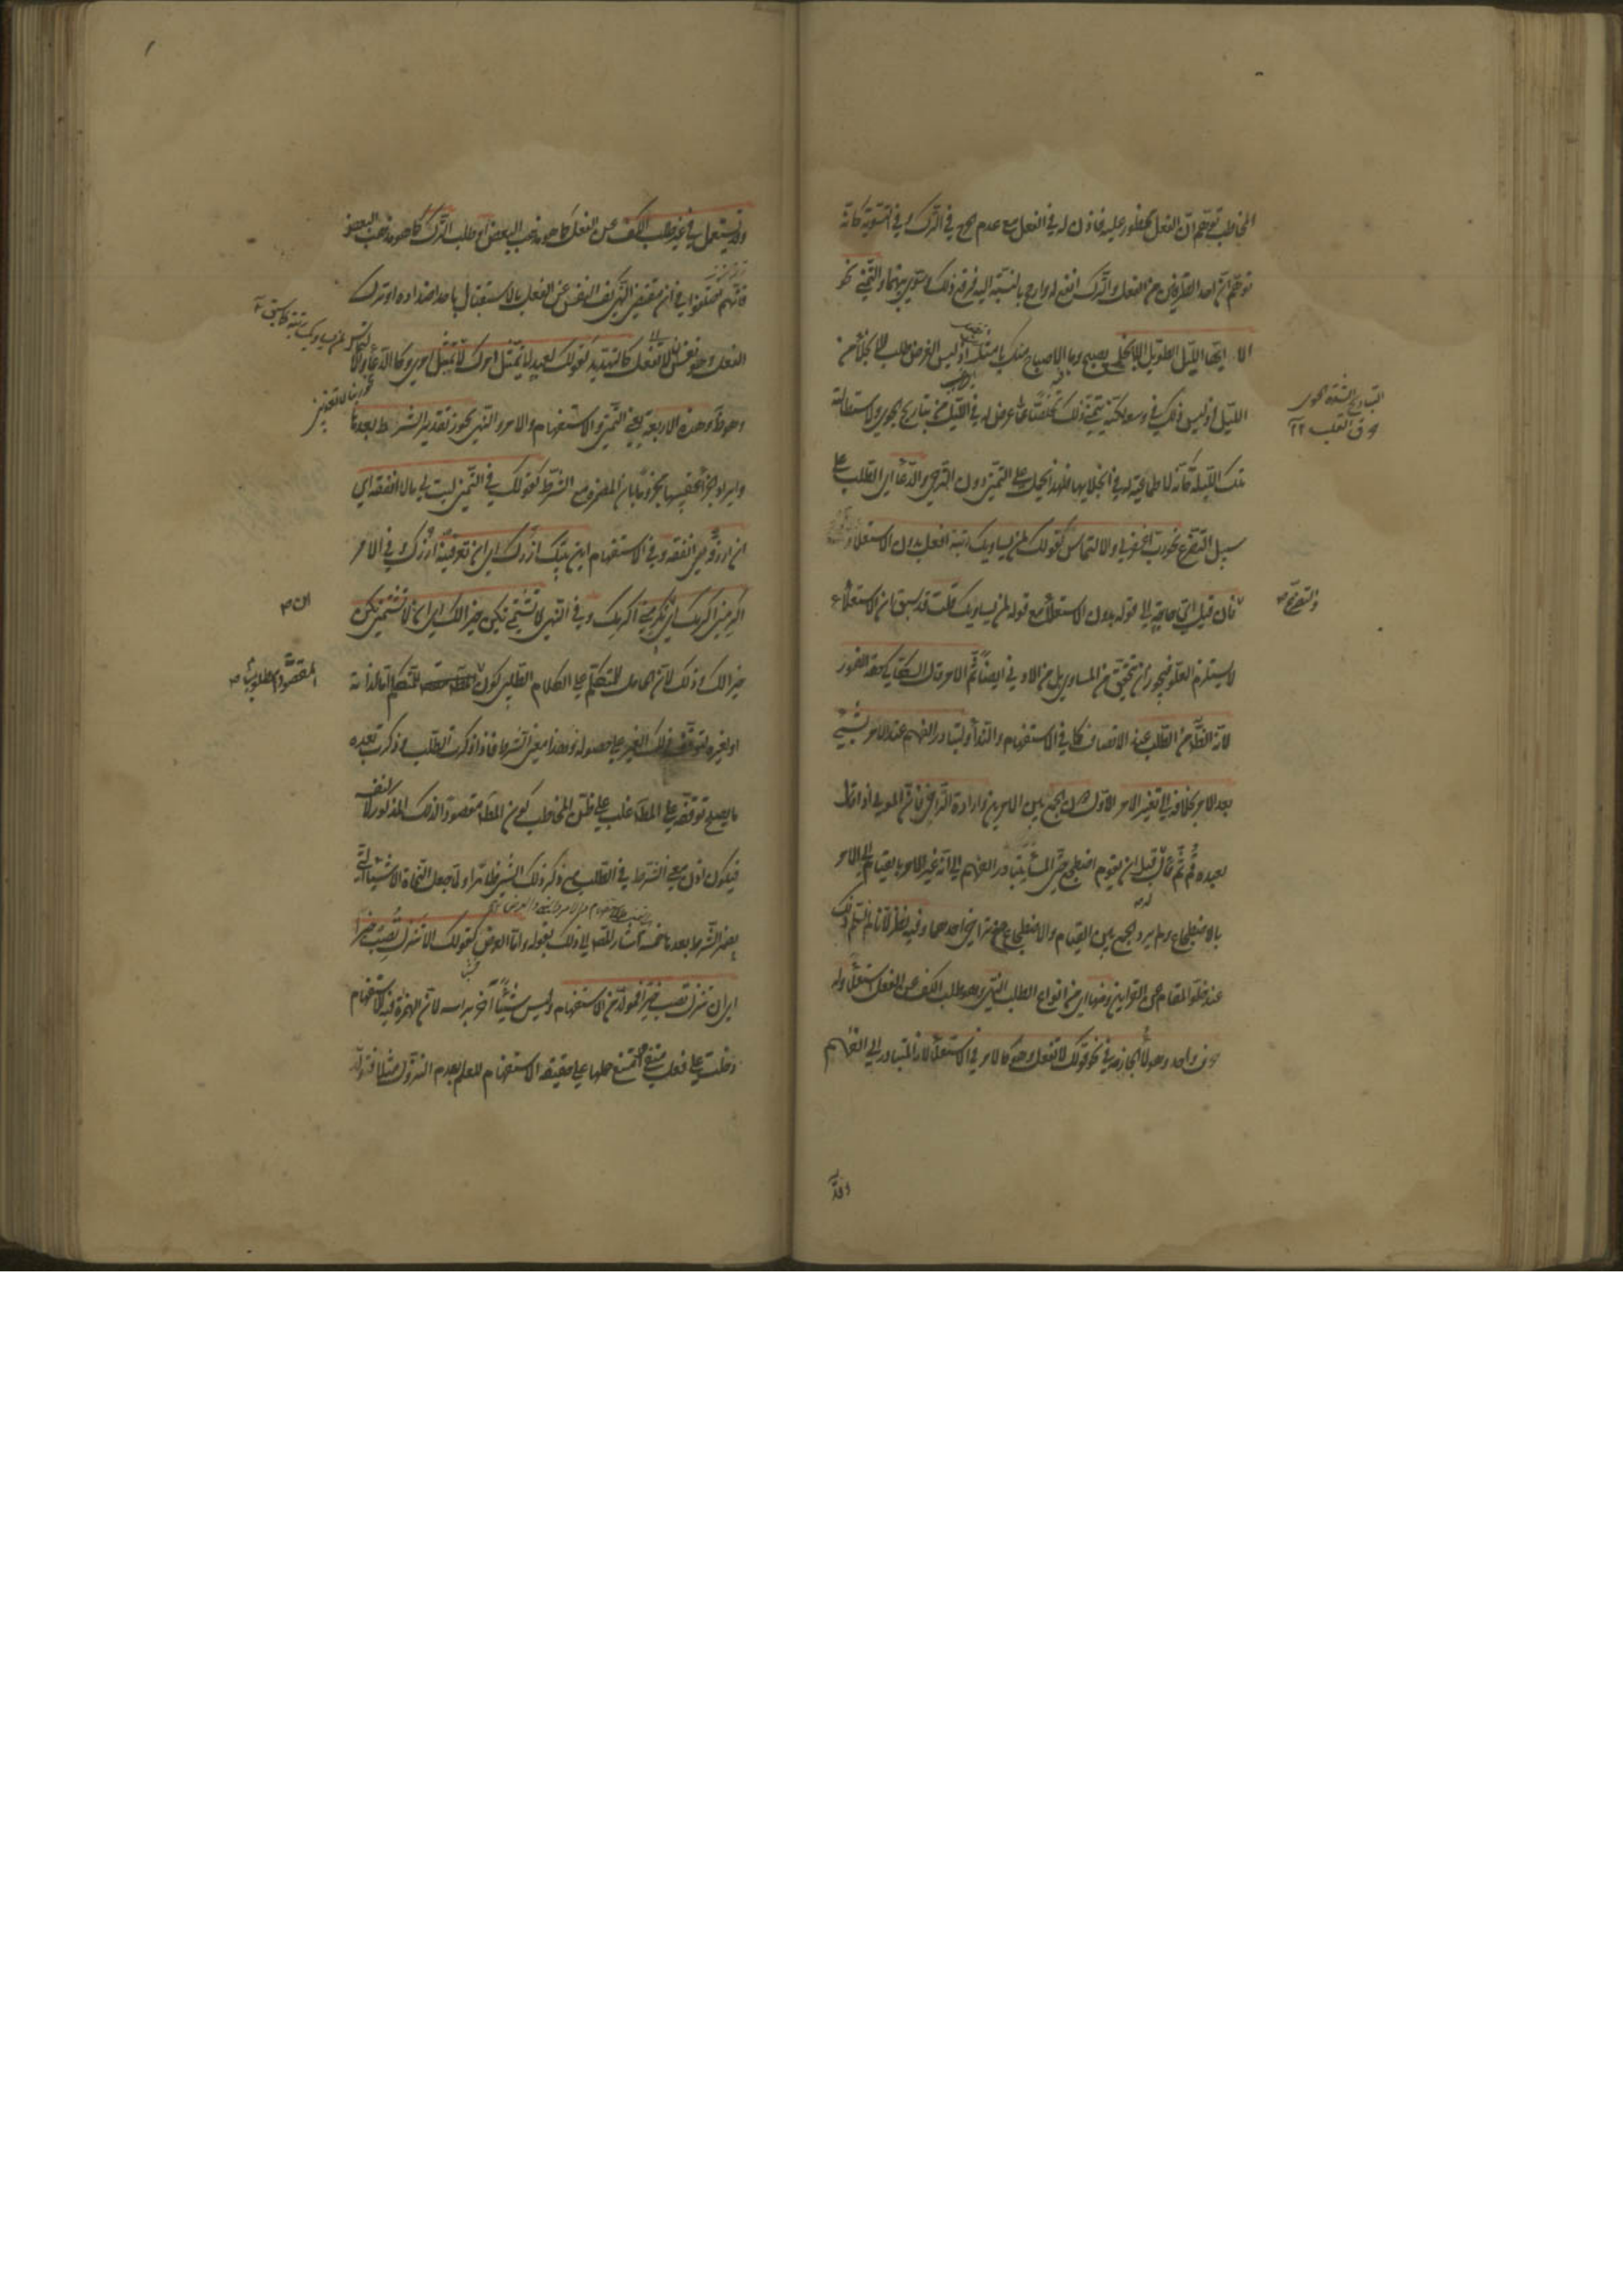 المخاطب توهم ان الفعل محظور عليه فاذن له في الفعل مع عدم الحرج في الترك وفي التسوية كانه
توهم ان احد الطرفين من الفعل والترك انفع له وارجح بالنسبة اليه فرفع ذلك وسوى بينهما والتمني نحو
الا ايها الليل الطويل الا انجلي بصبح وما الاصباح منك بامثل اذ ليس الغرض طلب الانجلاء من
الليل اذ ليس ذلك في وسعه لكنه يتمنى ذلك تخلصا عما عرض له في الليل من تباريح الجوى ولاستطالة
تلك الليلة كانه لا طماعية له في انجلائها فلهذا يحمل على التمني دون الترجي والدعاء اي الطلب على
سبيل التضرع نحو رب اغفر لي والالتماس كقولك لمن يساويك رتبة افعل بدون الاستعلاء
فان قيل اي حاجة الى قوله بدون الاستعلاء مع قوله لمن يساويك قلت قد سبق ان الاستعلاء
لا يستلزم العلو فيجوز ان يتحقق من المساوي بل من الادنى ايضا ثم الامر قال السكاكي حقه الفور
لانه الظاهر من الطلب عند الانصاف كما في الاستفهام والنداء ولتبادر الفهم عند الامر بشيء
بعد الامر بخلافه الى تغيير الامر الاول دون الجمع بين الامرين وارادة التراخي فان المولى اذا قال
لعبده قم ثم قال له قبل ان يقوم اضطجع حتى المساء يتبادر الفهم الى انه غير الامر بالقيام الى الامر
بالاضطجاع ولم يرد الجمع بين القيام والاضطجاع مع تراخي احدهما وفيه نظر لانا لا نسلم ذلك
عند خلو المقام عن القرائن ومنها اي من انواع الطلب النهي وهو طلب الكف عن الفعل استعلاء وله
حرف واحد وهو لا الجازمة في نحو قولك لا تفعل وهو كالامر في الاستعلاء لانه المتبادر الى الفهم
والتضرع
وقد
وقد يستعمل في غير طلب الكف عن الفعل كما هو مذهب البعض او طلب الترك كما هو مذهب البعض
فانهم اختلفوا في ان مقتضى النهي كف النفس عن الفعل بالاشتغال باحد اضداده او ترك
الفعل وهو نفس ان لا تفعل كالتهديد كقولك لعبد لا يمتثل امرك لا تمتثل امري وكالدعاء والالتماس
وهو ظاهر وهذه الاربعة يعني التمني والاستفهام والامر والنهي يجوز تقدير الشرط بعدها
وايراد الجزاء عقيبها مجزوما بان المضمرة مع الشرط كقولك في التمني ليت لي مالا انفقه اي
ان ارزقه انفقه وفي الاستفهام اين بيتك ازرك اي ان تعرفنيه ازرك وفي الامر
اكرمني اكرمك اي ان تكرمني اكرمك وفي النهي لا تشتمني يكن خيرا لك اي ان لا تشتمني يكن
خيرا لك وذلك لان الحامل للمتكلم على الكلام الطلبي كون المطلوب مقصودا للمتكلم اما لذاته
او لغيره لتوقف ذلك الغير على حصوله وهذا معنى الشرط فاذا ذكرت الطلب وذكرت بعده
ما يصلح توقفه على المط غلب على ظن المخاطب كون المط مقصودا لذلك المذكور لا لنفسه
فيكون اذن معنى الشرط في الطلب مع ذكر ذلك الشيء ظاهرا ولما جعل النحاة الاشياء التي
يضمر الشرط بعدها خمسة اشار المص الى ذلك بقوله واما العرض كقولك الا تنزل تصب خيرا
اي ان تنزل تصب خيرا فمولد من الاستفهام وليس شيئا آخر براسه لان الهمزة فيه للاستفهام
دخلت على فعل منفي امتنع حملها على حقيقة الاستفهام للعلم بعدم النزول مثلا فتولد